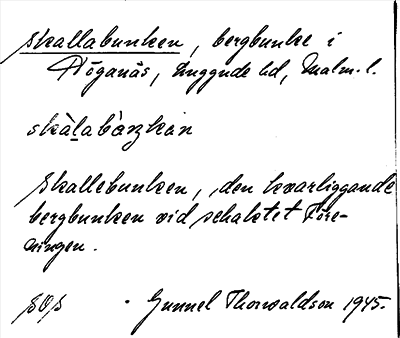 Skallabunken, bergbunke i
Höganäs, Luggude hd, Malm. l.
skàlabàŋkən
Skallebunken, den kvarliggande
bergbunken vid schaktet Före-
ningen.
Gunnel Thorvaldson 1945.